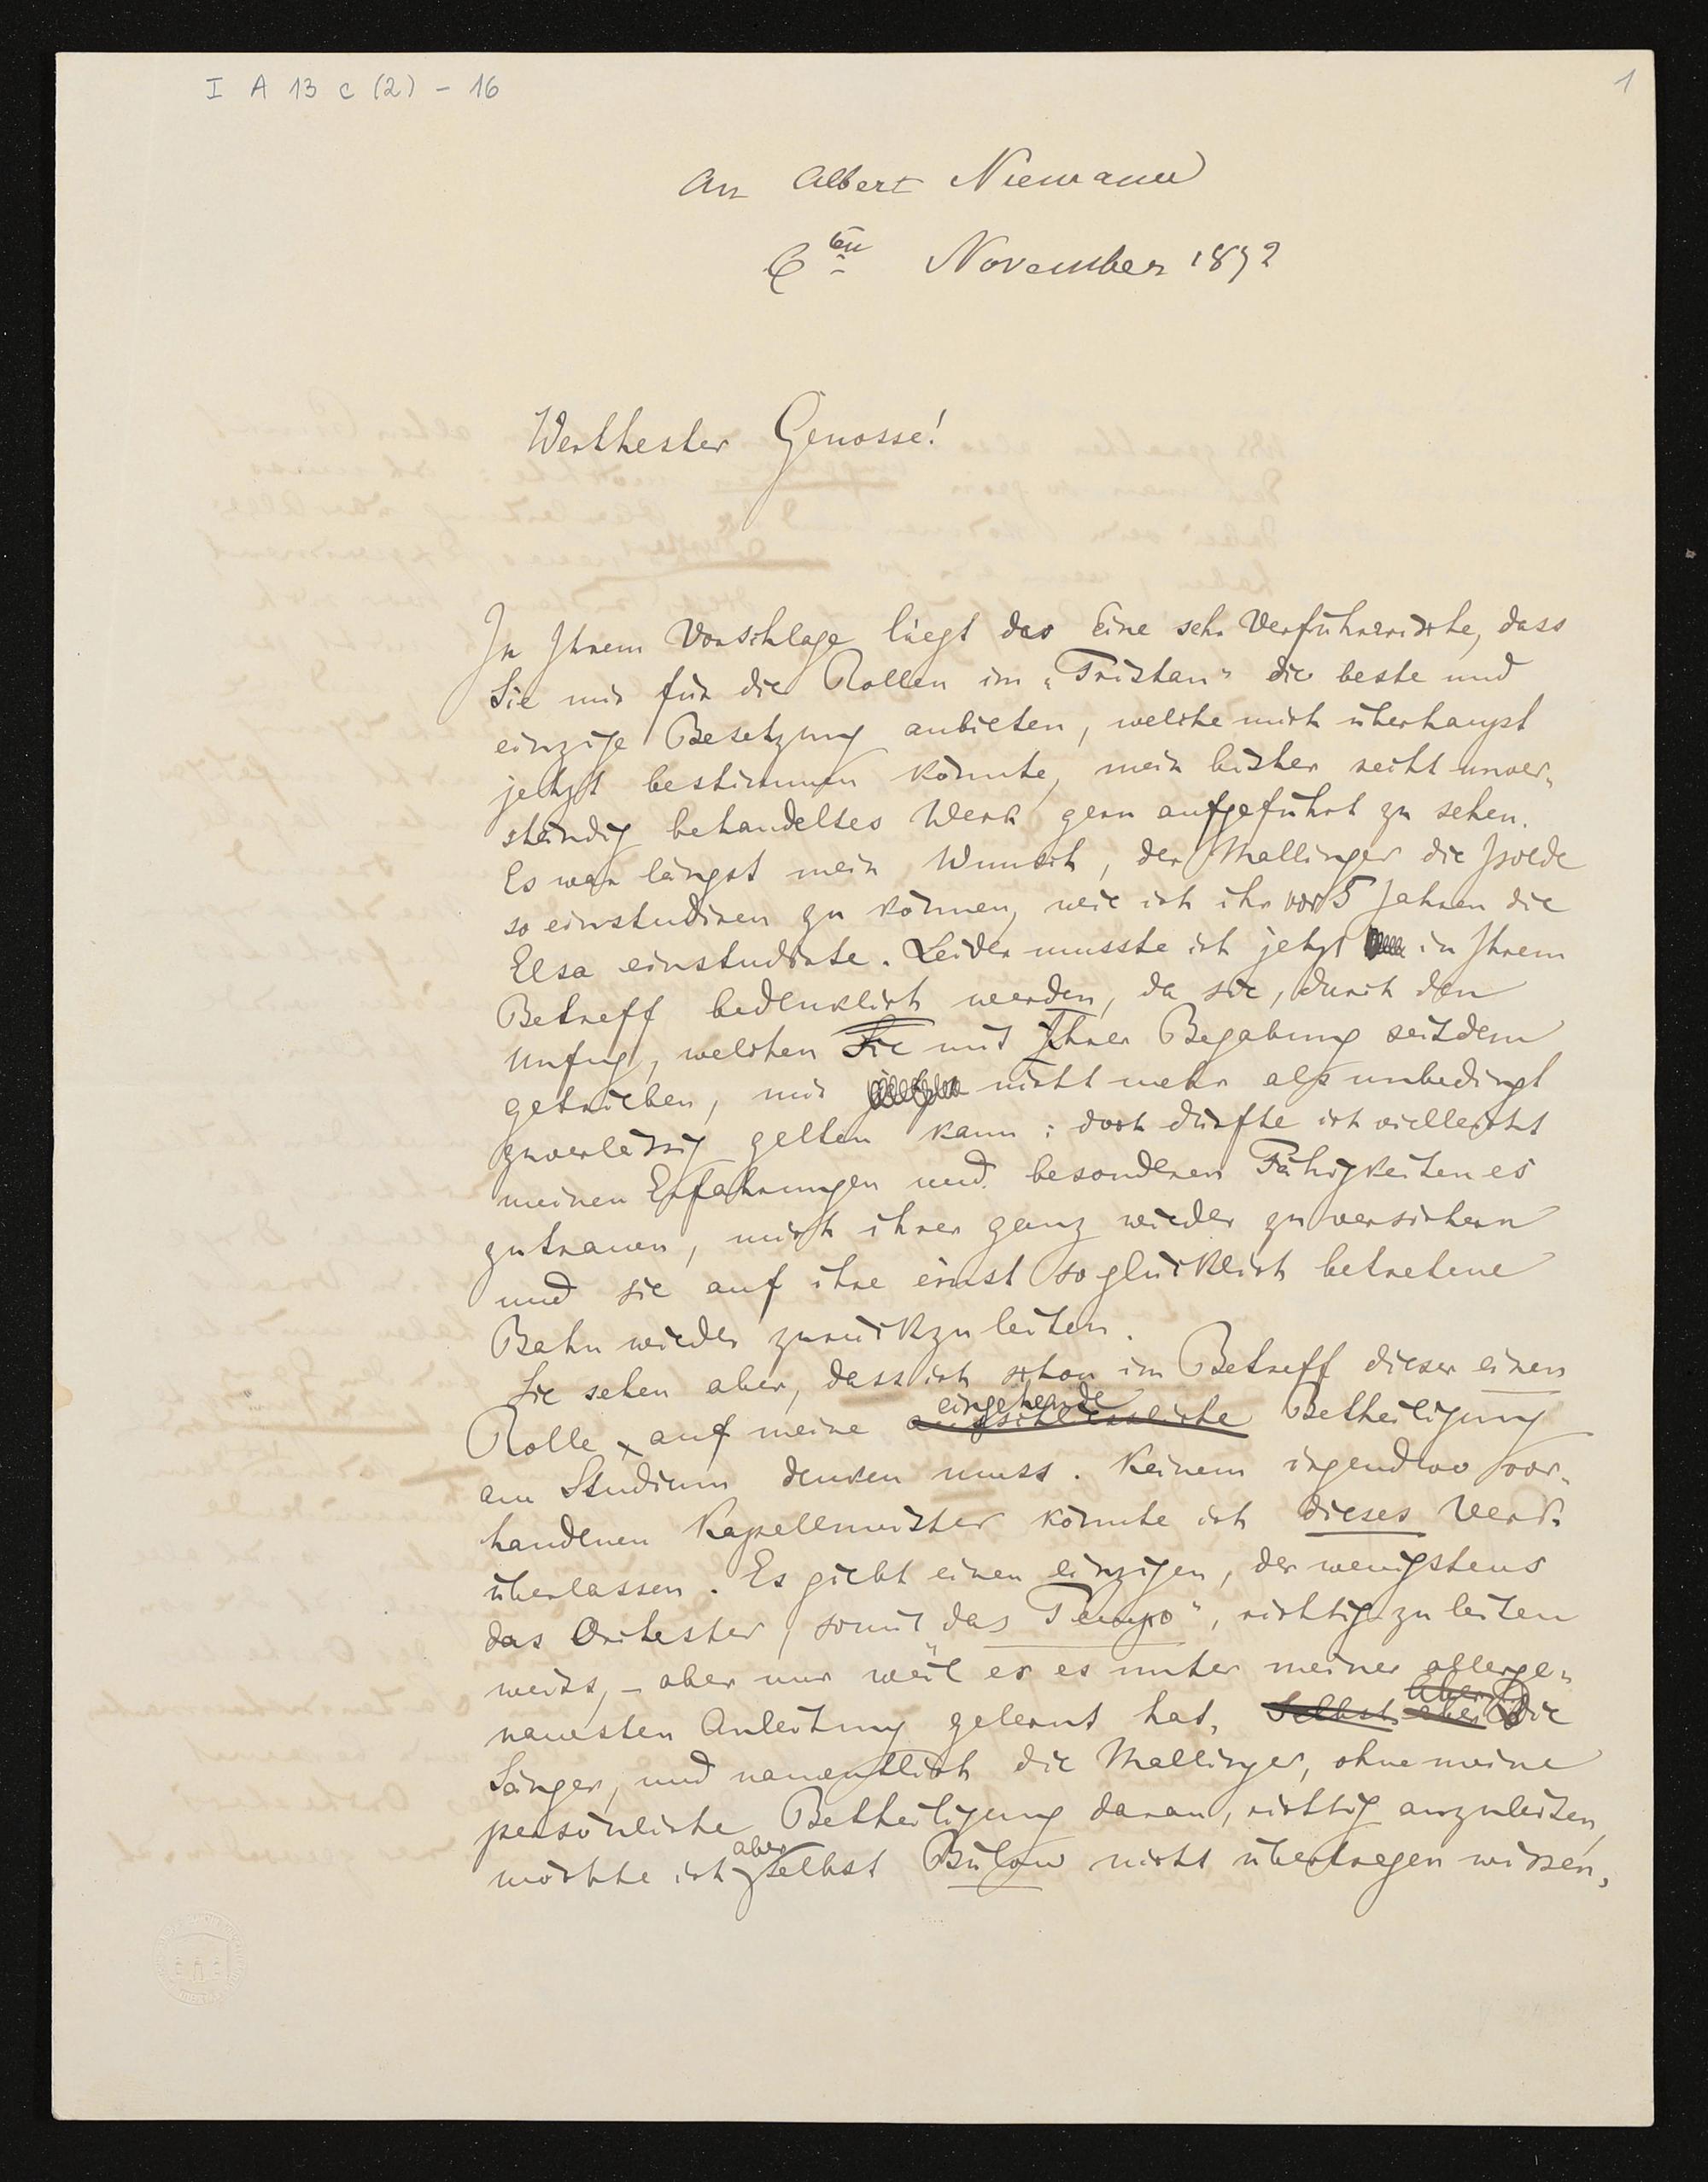 I A 13 c (2) - 16
1
An Albert Niemann
6ten November 1872
Werthester Genosse!
In Ihrem Vorschlage liegt das Eine sehr Verführerische, dass
Sie mir für die Rollen im „Tristan" die beste und
einzige Besetzung anbieten, welche mich überhaupt
jetzt bestimmen könnte, mein bisher recht unver-
ständig behandeltes Werk gern aufgeführt zu sehen.
Es war längst mein Wunsch, der Mallinger die Isolde
so einstudiren zu können, wie ich ihr vor 5 Jahren die
Elsa einstudirte. Leider musste ich jetzt in Ihrem
Betreff bedenklich werden, da sie, durch den
Unfug, welchen Sie mit Ihrer Begabung seitdem
getrieben, mir nicht mehr als unbedingt
zuverlässig gelten kann: doch dürfte ich vielleicht
meinen Erfahrungen und besonderen Fähigkeiten es
zutrauen, mich ihrer ganz wieder zu versichern
und sie auf ihre einst so glücklich betretene
Bahn wieder zurückzuleiten.
Sie sehen aber, dass ich schon im Betreff dieser einen
eingehende
Rolle auf meine ausschliessliche Betheiligung
am Studium denken muss. Keinem irgendwo vor-
handenen Kapellmeister könnte ich dieses Werk
überlassen. Es giebt einen einzigen, der wenigstens
das Orchester, somit „das Tempo", richtig zu leiten
weiss, – aber nur weil er es unter meiner allerge-
nauesten Anleitung gelernt hat. Selbst aber Aber Die
Sänger, und namentlich die Mallinger, ohne meine
persönliche Betheiligung daran, richtig anzuleiten,
möchte ich aber selbst Bülow nicht übertragen wissen,